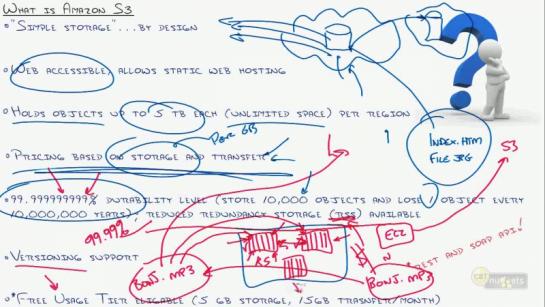 WHAT IS AMAZON S3
"SIMPLE STORAGE"...BY DESIGN
WEB ACCESSIBLE, ALLOWS STATIC WEB HOSTING
HOLDS OBJECTS UP TO 5 TB EACH (UNLIMITED SPACE) PER REGION
PER GB
INDEX.HTM
FILE.JPG
S3
PRICING BASED ON STORAGE AND TRANSFER
99.999999999% DURABILITY LEVEL (STORE 10,000 OBJECTS AND LOSE 1 OBJECT EVERY
10,000,000 YEARS); REDUCED REDUNDANCY STORAGE (RSS) AVAILABLE
99.99%
EC2
* REST AND SOAP API!
VERSIONING SUPPORT
RS
BONJ.MP3
BONJ.MP3
cbt nuggets
*FREE USAGE TIER ELIGABLE (5 GB STORAGE, 15GB TRASNFER/MONTH)